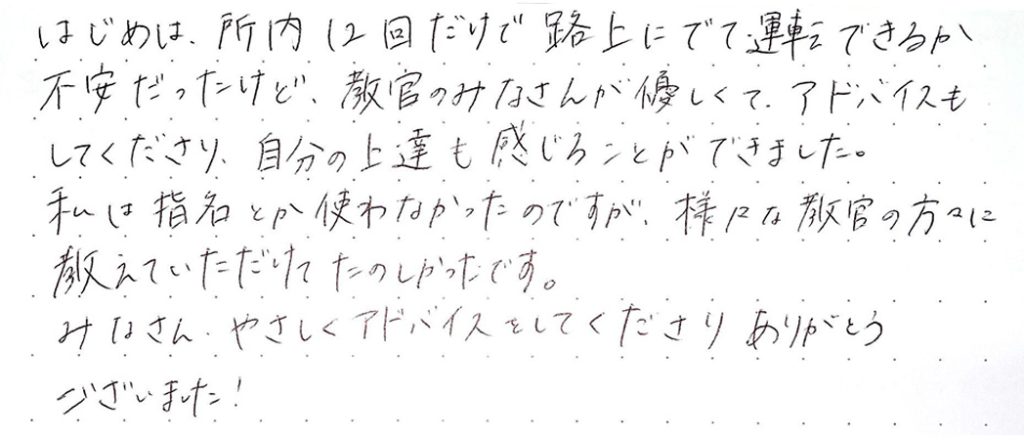 はじめは、所内12回だけで路上にでて運転できるか
不安だったけど、教官のみなさんが優しくて、アドバイスも
してくださり、自分の上達も感じることができました。
私は指名とか使わなかったのですが、様々な教官の方々に
教えていただけてたのしかったです。
みなさん、やさしくアドバイスをしてくださりありがとう
ございました!